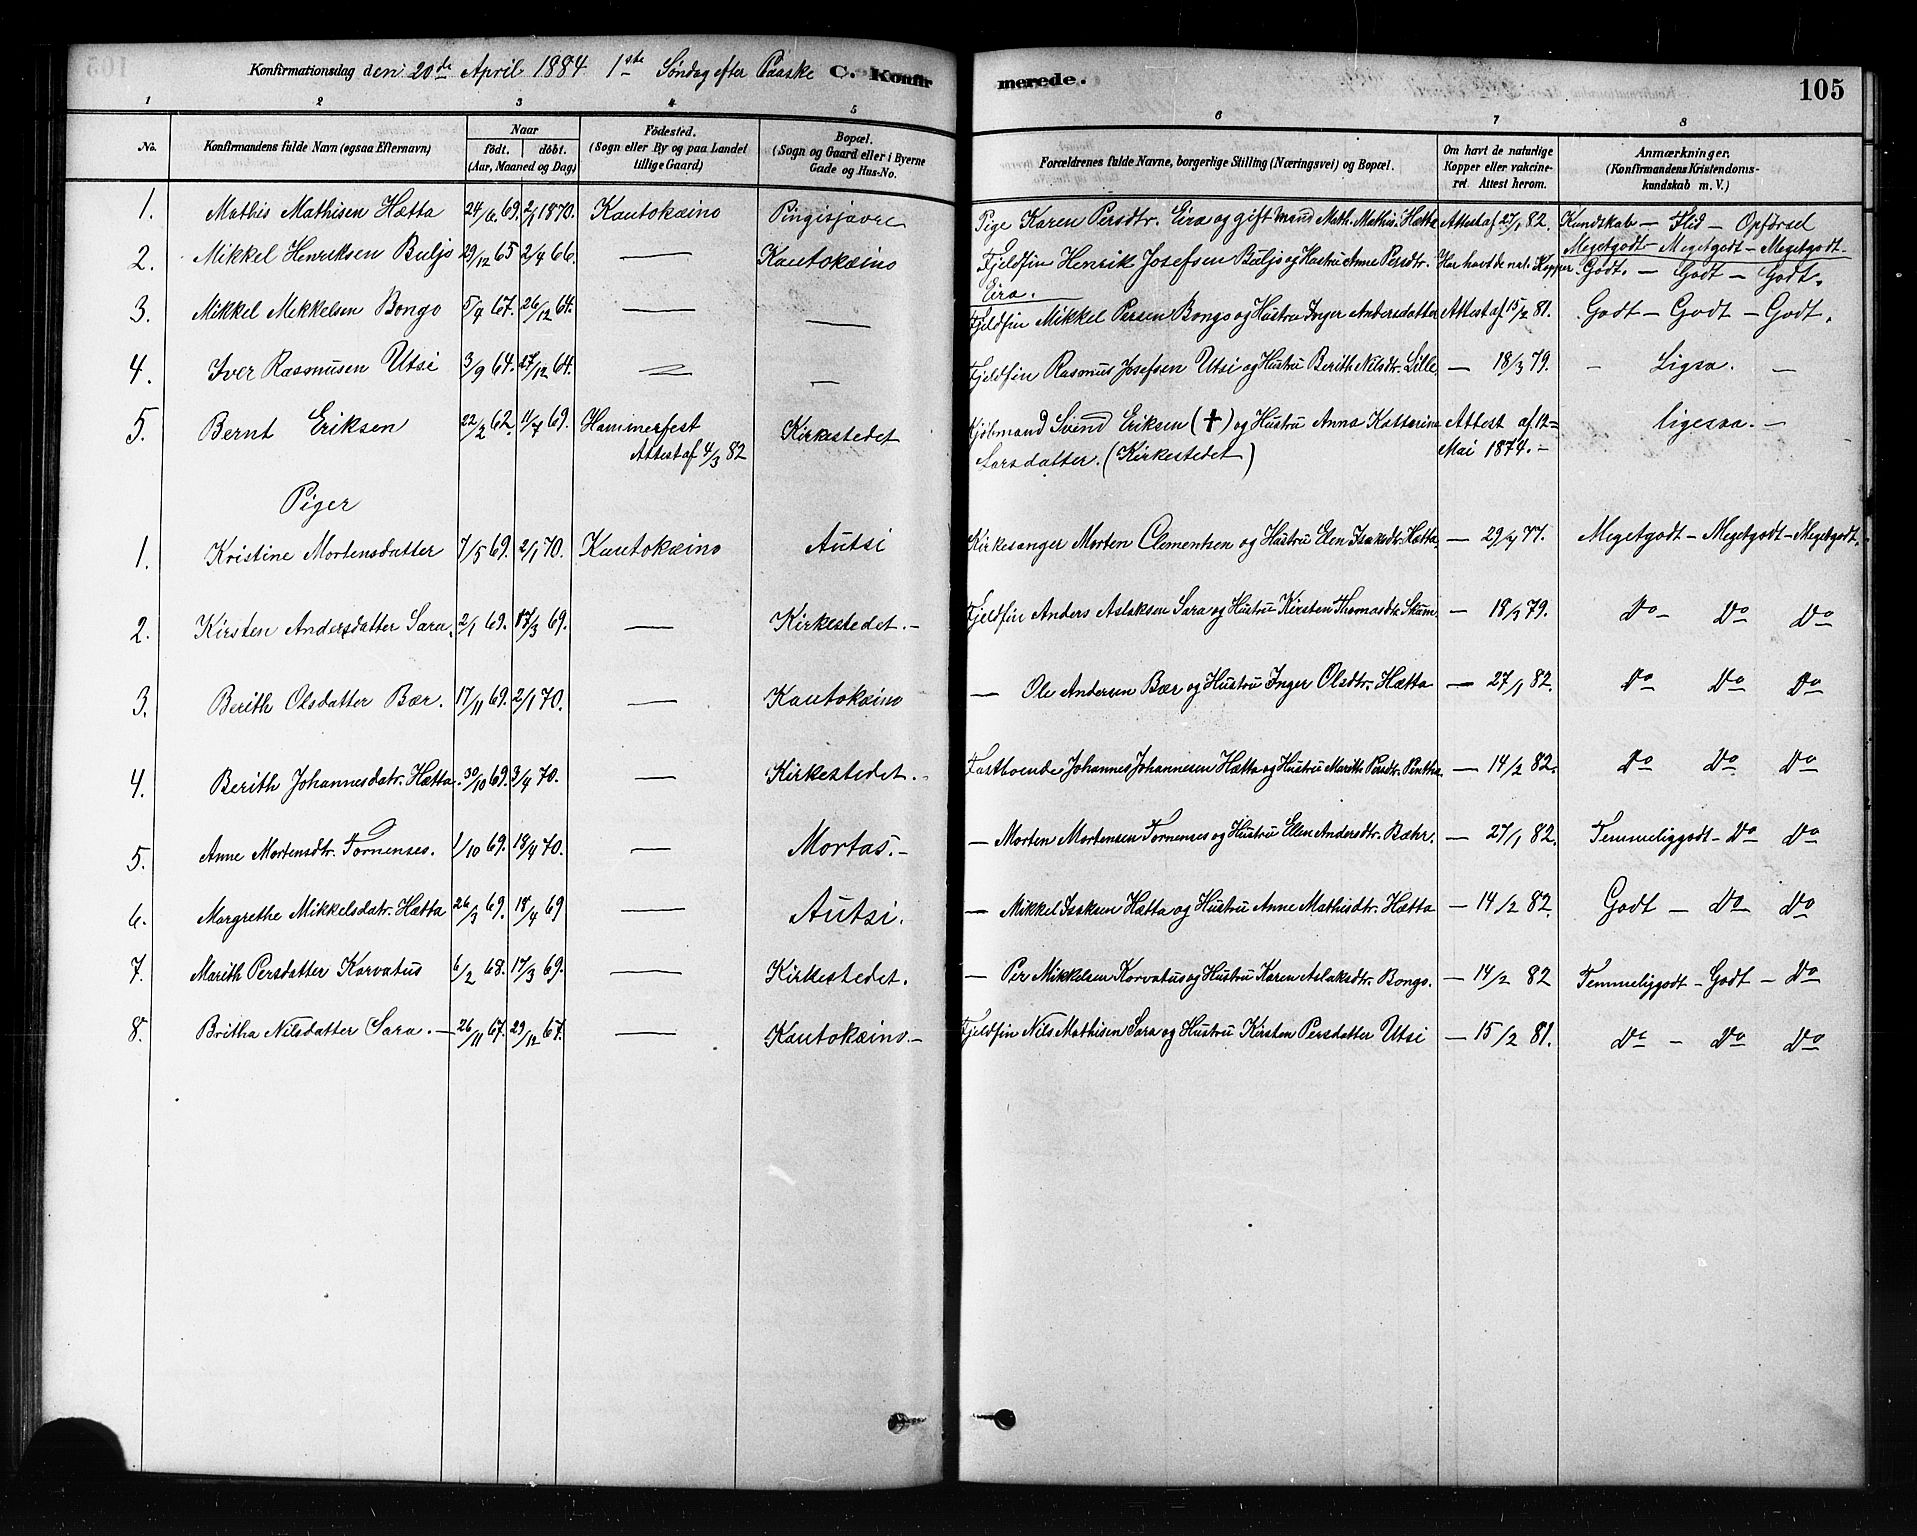 Konfirmationsdag den 20de April 1884 1ste Søndag efter Paaske C. Konfirmerede. 105
1 2 3 4 5 6 7 8
No. Konfirmandens fulde Navn (ogsaa Efternavn) Naar født. døbt. (Aar, Maaned og Dag) Fødested. (Sogn eller By og paa Landet tillige Gaard) Bopæl. (Sogn og Gaard eller i Byerne Gade og Hus-No. Forældrenes fulde Navne, borgerlige Stilling (Næringsvei) og Bopæl. Om havt de naturlige Kopper eller vakcineret. Attest herom. Anmærkninger. (Konfirmandens Kristendomskundskab m. V.)
1. Mathis Mathisen Hætta 24/6 69. 2/1 1870. Kautokæino Pingisjavre Pige Karen Persdtr. Eira og gift Mand Math. Mathis. Hætta Attest af 27/1 82. Kundskab – Flid – Opførsel
Megetgodt – Megetgodt – Megetgodt
2. Mikkel Henriksen Buljo 29/12 65 2/4 66. — Kautokæino Fjeldfin Henrik Josefsen Buljo og Hustru Anne Persdtr. Eira. Har havt de nat. Kopper. Godt. – Godt – Godt.
3. Mikkel Mekkelsen Bongo 5/4 67. 26/12 64. — — Fjeldfin Mikkel Persen Bongo og Hustru Inger Andersdatter Attest af 15/2 81. Godt – Godt – Godt.
4. Iver Rasmusen Utsi 3/9 64. 27/12 64. — — Fjeldfin Rasmus Josefsen Utsi og Hustru Berith Nilsdtr. Lille. — 18/3 79. – Ligsa. –
5. Bernt Eriksen 22/2 62. 11/4 69. Hammerfest Kirkestedet Kjøbmand Svend Eriksen (✝) og Hustru Anna Kattarina Attest af 12= ligesaa. –
Attest af 4/3 82 Larsdatter. (Kirkestedet) Mai 1874. –
Piger
1. Kristine Mortensdatter 7/5 69. 2/1 70. Kautokæino Autsi Kirkesanger Morten Clementsen og Hustru Elen Isaksdtr. Hætta. — 77. Megetgodt – Megetgodt – Megetgodt.
2. Kirsten Andersdatter Sara. 2/1 69. 17/3 69. — Kirkestedet. – Fjeldfin Anders Aslaksen Sara og Hustru Kirsten Thomasdtr. Skum. — 18/3 79. Do – Do Do
3. Berith Olsdatter Bær. 17/11 69. 2/1 70. — Kautokæino — Ole Andersen Bær og Hustru Inger Olsdtr. Hætta — 27/1 82. Do Do Do
4. Berith Johannesdatr. Hætta. 30/10 69. 3/4 70. — Kirkestedet. – Fastboende Johannes Johannesen Hætta og Hustru Marith Persdtr. Pentha. — 14/2 82. Do Do Do
5. Anne Mortensdtr. Fornenses. 1/10 69. 18/4 70. — Mortas. – — Morten Mortensen Fornenses og Hustru Elen Andersdtr. Bæhr. — 27/1 82. Temmeliggodt – Do Do
6. Margrethe Mikkelsdatr. Hætta 26/3 69. 18/4 69 — Autsi. — Mikkel Isaksen Hætta og Hustru Anne Mathisdtr. Hætta — 14/2 82. Godt – Do Do
7. Marith Persdatter Korvatus 6/2 68. 17/3 69. — Kirkestedet. — Per Mikkelsen Korvatus og Hustru Karen Aslaksdtr. Bongo. — 14/2 82 Temmeliggodt – Godt – Do
8. Britha Nilsdatter Sara. – 26/11 67. 29/12 67. — Kautokæino. – Fjeldfin Nils Mathisen Sara og Hustru Kirsten Persdatter Utsi — 15/2 81. Do – Do Do